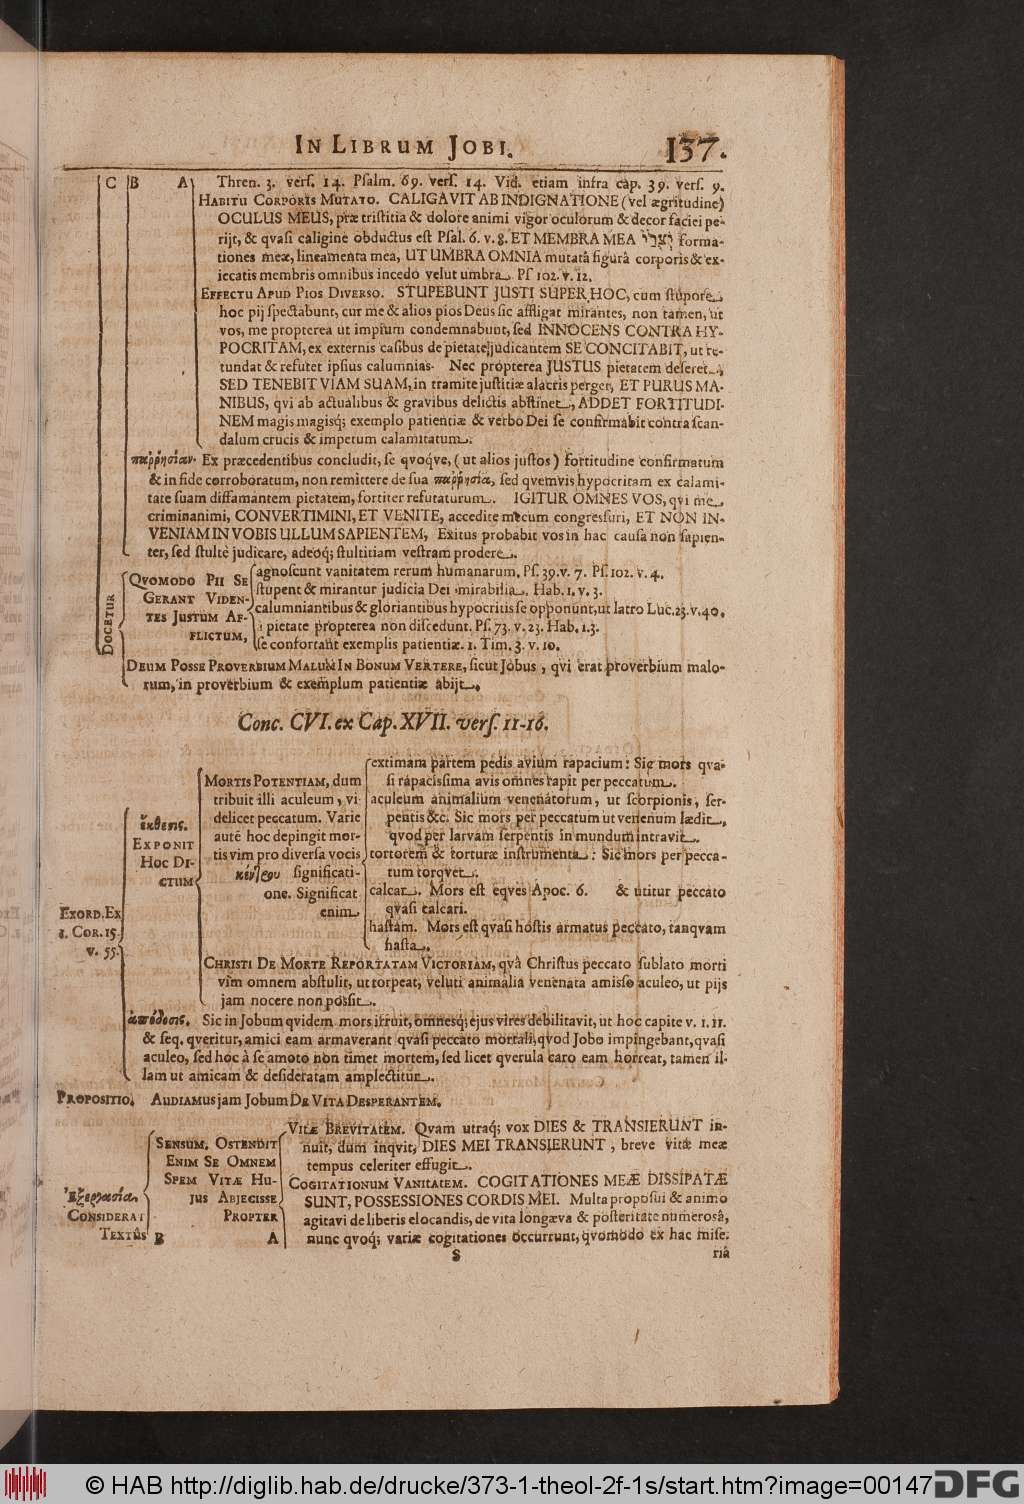 IN LIBRUM JOBI.
137.
C B A Thren. 3. verſ. 14. Pſalm. 69. verſ. 14. Vid. etiam infra cap. 39. verſ. 9.
HABITU CORPORIS MUTATO. CALIGAVIT AB INDIGNATIONE (vel ægritudine)
OCULUS MEUS, præ triſtitia & dolore animi vigor oculorum & decor faciei pe-
rijt, & qvaſi caligine obductus eſt Pſal. 6. v. 8. ET MEMBRA MEA forma-
tiones meæ, lineamenta mea, UT UMBRA OMNIA mutatâ figurâ corporis & ex-
iccatis membris omnibus incedo velut umbra. Pſ 102. v. 12.
EFFECTU APUD PIOS DIVERSO. STUPEBUNT JUSTI SUPER HOC, cum ſtupore
hoc pij ſpectabunt, cur me & alios pios Deus ſic affligat mirantes, non tamen, ut
vos, me propterea ut impium condemnabunt, ſed INNOCENS CONTRA HY-
POCRITAM, ex externis caſibus de pietate judicantem SE CONCITABIT, ut re-
tundat & refutet ipſius calumnias. Nec propterea JUSTUS pietatem deſeret,
SED TENEBIT VIAM SUAM, in tramite juſtitiæ alacris perget, ET PURUS MA-
NIBUS, qvi ab actualibus & gravibus delictis abſtinet, ADDET FORTITUDI-
NEM magis magisq; exemplo patientiæ & verbo Dei ſe confirmabit contra ſcan-
dalum crucis & impetum calamitatum.
παῤῥησίαν. Ex præcedentibus concludit, ſe qvoqve, (ut alios juſtos) fortitudine confirmatum
& in fide corroboratum, non remittere de ſua παῤῥησία, ſed qvemvis hypocritam ex calami-
tate ſuam diffamantem pietatem, fortiter refutaturum. IGITUR OMNES VOS, qvi me
criminanimi, CONVERTIMINI, ET VENITE, accedite mecum congresſuri, ET NON IN-
VENIAM IN VOBIS ULLUM SAPIENTEM, Exitus probabit vos in hac cauſa non ſapien-
ter, ſed ſtultè judicare, adeoq; ſtultitiam veſtram prodere.
DOCETUR
QVOMODO PII SE
GERANT VIDEN-
TES JUSTUM AF-
FLICTUM,
agnoſcunt vanitatem rerum humanarum. Pſ. 39. v. 7. Pſ. 102. v. 4.
ſtupent & mirantur judicia Dei mirabilia. Hab. 1. v. 3.
calumniantibus & gloriantibus hypocritis ſe opponunt, ut latro Luc. 23. v. 40.
à pietate propterea non diſcedunt. Pſ. 73. v. 23. Hab. 1. 3.
ſe confortant exemplis patientiæ. 1. Tim. 3. v. 10.
DEUM POSSE PROVERBIUM MALUM IN BONUM VERTERE, ſicut Jobus, qvi erat proverbium malo-
rum, in proverbium & exemplum patientiæ abijt.
Conc. CVI. ex Cap. XVII. verſ. 11-16.
EXORD. EX
1. COR. 15.
v. 55.
ἔκθεσις.
EXPONIT
HOC DI-
CTUM
MORTIS POTENTIAM, dum
tribuit illi aculeum, vi-
delicet peccatum. Varie
autē hoc depingit mor-
tis vim pro diverſa vocis
κέντρου ſignificati-
one. Significat
enim
extimam partem pedis avium rapacium: Sic mors qva-
ſi rapaciſſima avis omnes rapit per peccatum.
aculeum animalium venenatorum, ut ſcorpionis, ſer-
pentis &c. Sic mors per peccatum ut venenum lædit,
qvod per larvam ſerpentis in mundum intravit.
tortorem & torturæ inſtrumenta: Sic mors per pecca-
tum torqvet.
calcar. Mors eſt eqves Apoc. 6. & utitur peccato
qvaſi calcari.
haſtam. Mors eſt qvaſi hoſtis armatus peccato, tanqvam
haſta.
CHRISTI DE MORTE REPORTATAM VICTORIAM, qvâ Chriſtus peccato ſublato morti
vim omnem abſtulit, ut torpeat, veluti animalia venenata amiſſo aculeo, ut pijs
jam nocere non poſſit.
ἀπόδοσις. Sic in Jobum qvidem mors irruit, omnesq; ejus vires debilitavit, ut hoc capite v. 1. 11.
& ſeq. qveritur, amici eam armaverant qvaſi peccato mortali, qvod Jobo impingebant, qvaſi
aculeo, ſed hoc à ſe amoto non timet mortem, ſed licet qverula caro eam horreat, tamen il-
lam ut amicam & deſideratam amplectitur.
PROPOSITIO. AUDIAMUS jam Jobum DE VITA DESPERANTEM.
Ἐξεργασία,
CONSIDERAT
TEXTÛS B
SENSUM. OSTENDIT
ENIM SE OMNEM
SPEM VITÆ HU-
JUS ABJECISSE
PROPTER
A
VITÆ BREVITATEM. Qvam utraq; vox DIES & TRANSIERUNT in-
nuit, dum inqvit, DIES MEI TRANSIERUNT, breve vitæ meæ
tempus celeriter effugit.
COGITATIONUM VANITATEM. COGITATIONES MEÆ DISSIPATÆ
SUNT, POSSESSIONES CORDIS MEI. Multa propoſui & animo
agitavi de liberis elocandis, de vita longæva & poſteritate numeroſâ,
nunc qvoq; variæ cogitationes occurrunt, qvomodo ex hac miſe-
S
riâ
© HAB http://diglib.hab.de/drucke/373-1-theol-2f-1s/start.htm?image=00147
DFG